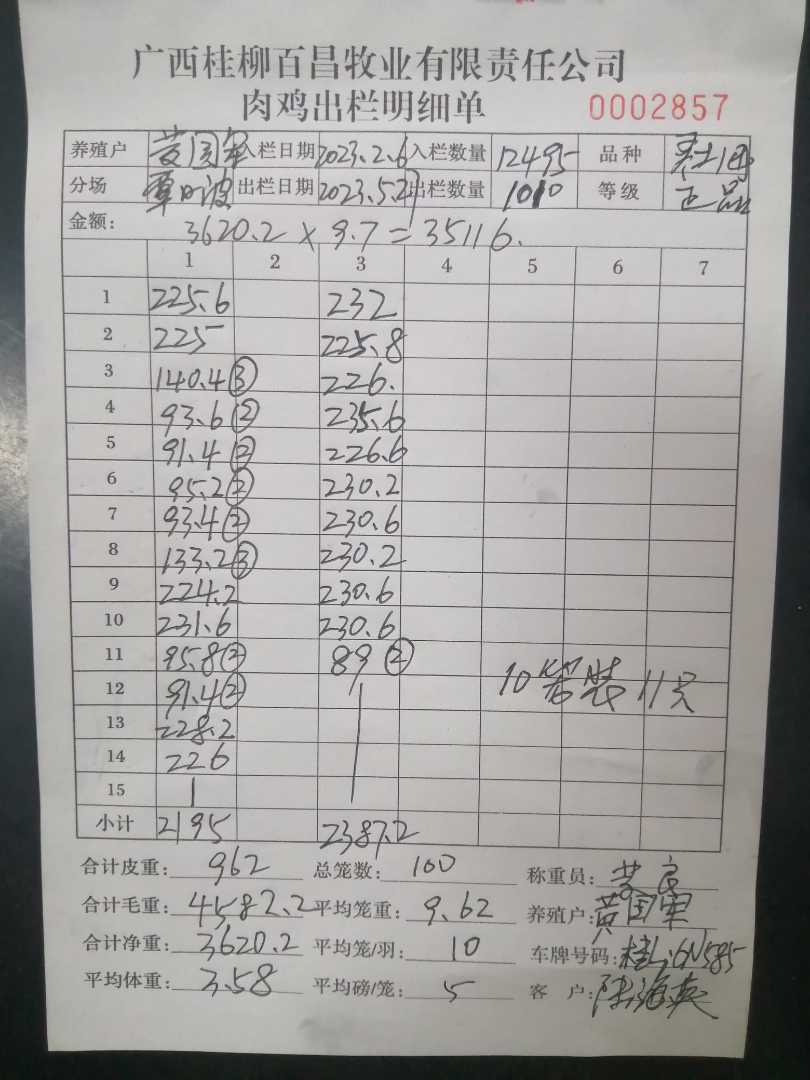 广西桂柳百昌牧业有限责任公司
肉鸡出栏明细单 0002857
养殖户 黄国军 入栏日期 2023.2.6 入栏数量 12495 品种
分场 覃 波 出栏日期 2023.5.27 出栏数量 1010 等级 正品
金额: 3620.2 × 9.7 = 35116.
1 2 3 4 5 6 7
1 225.6 232
2 225 225.8
3 140.4③ 226.
4 93.6② 235.6
5 91.4② 226.6
6 95.2② 230.2
7 93.4② 230.6
8 133.2③ 230.2
9 224.2 230.6
10 231.6 230.6
11 95.8② 89②
12 91.4② 10笼装11只
13 228.2
14 226
15
小计 2195 2387.2
合计皮重: 962 总笼数: 100 称重员: 黄良
合计毛重: 4582.2 平均笼重: 9.62 养殖户: 黄国军
合计净重: 3620.2 平均笼/羽: 10 车牌号码: 桂L·6N585
平均体重: 3.58 平均磅/笼: 5 客 户: 陆海英